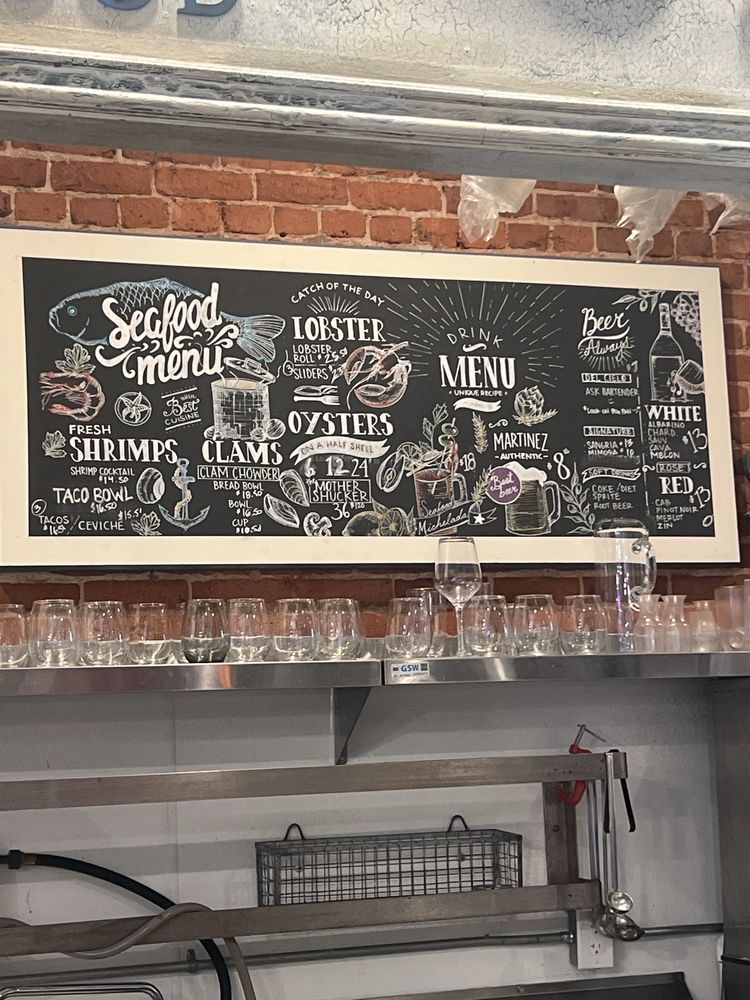 Seafood
menu
with
Best
CUISINE
FRESH
SHRIMPS
SHRIMP COCKTAIL
$14.50
TACO BOWL
$16.50
③
TACOS
CEVICHE
$15.51
CLAMS
CLAM CHOWDER
BREAD BOWL
$18.50
BOWL
$16.50
CUP
$10.50
CATCH OF THE DAY
LOBSTER
LOBSTER
ROLL
③ SLIDERS
OYSTERS
ON A HALF SHELL
6 12-24
MOTHER
SHUCKER
36 $120
DRINK
MENU
UNIQUE RECIPE
$18
Seafood
Michelada
MARTINEZ
-AUTHENTIC-
$8
Best
beer
Beer
Always
DEL CIELO
ASK BARTENDER
SIGNATURE
SANGRIA $13
MIMOSA
SOFT DRINKS
COKE / DIET
SPRITE
ROOT BEER
WHITE
ALBARINO
CHARD.
SAUV.
MELON
$13
ROSE
RED
CAB
PINOT NOIR
MERLOT
ZIN
$13
GSW